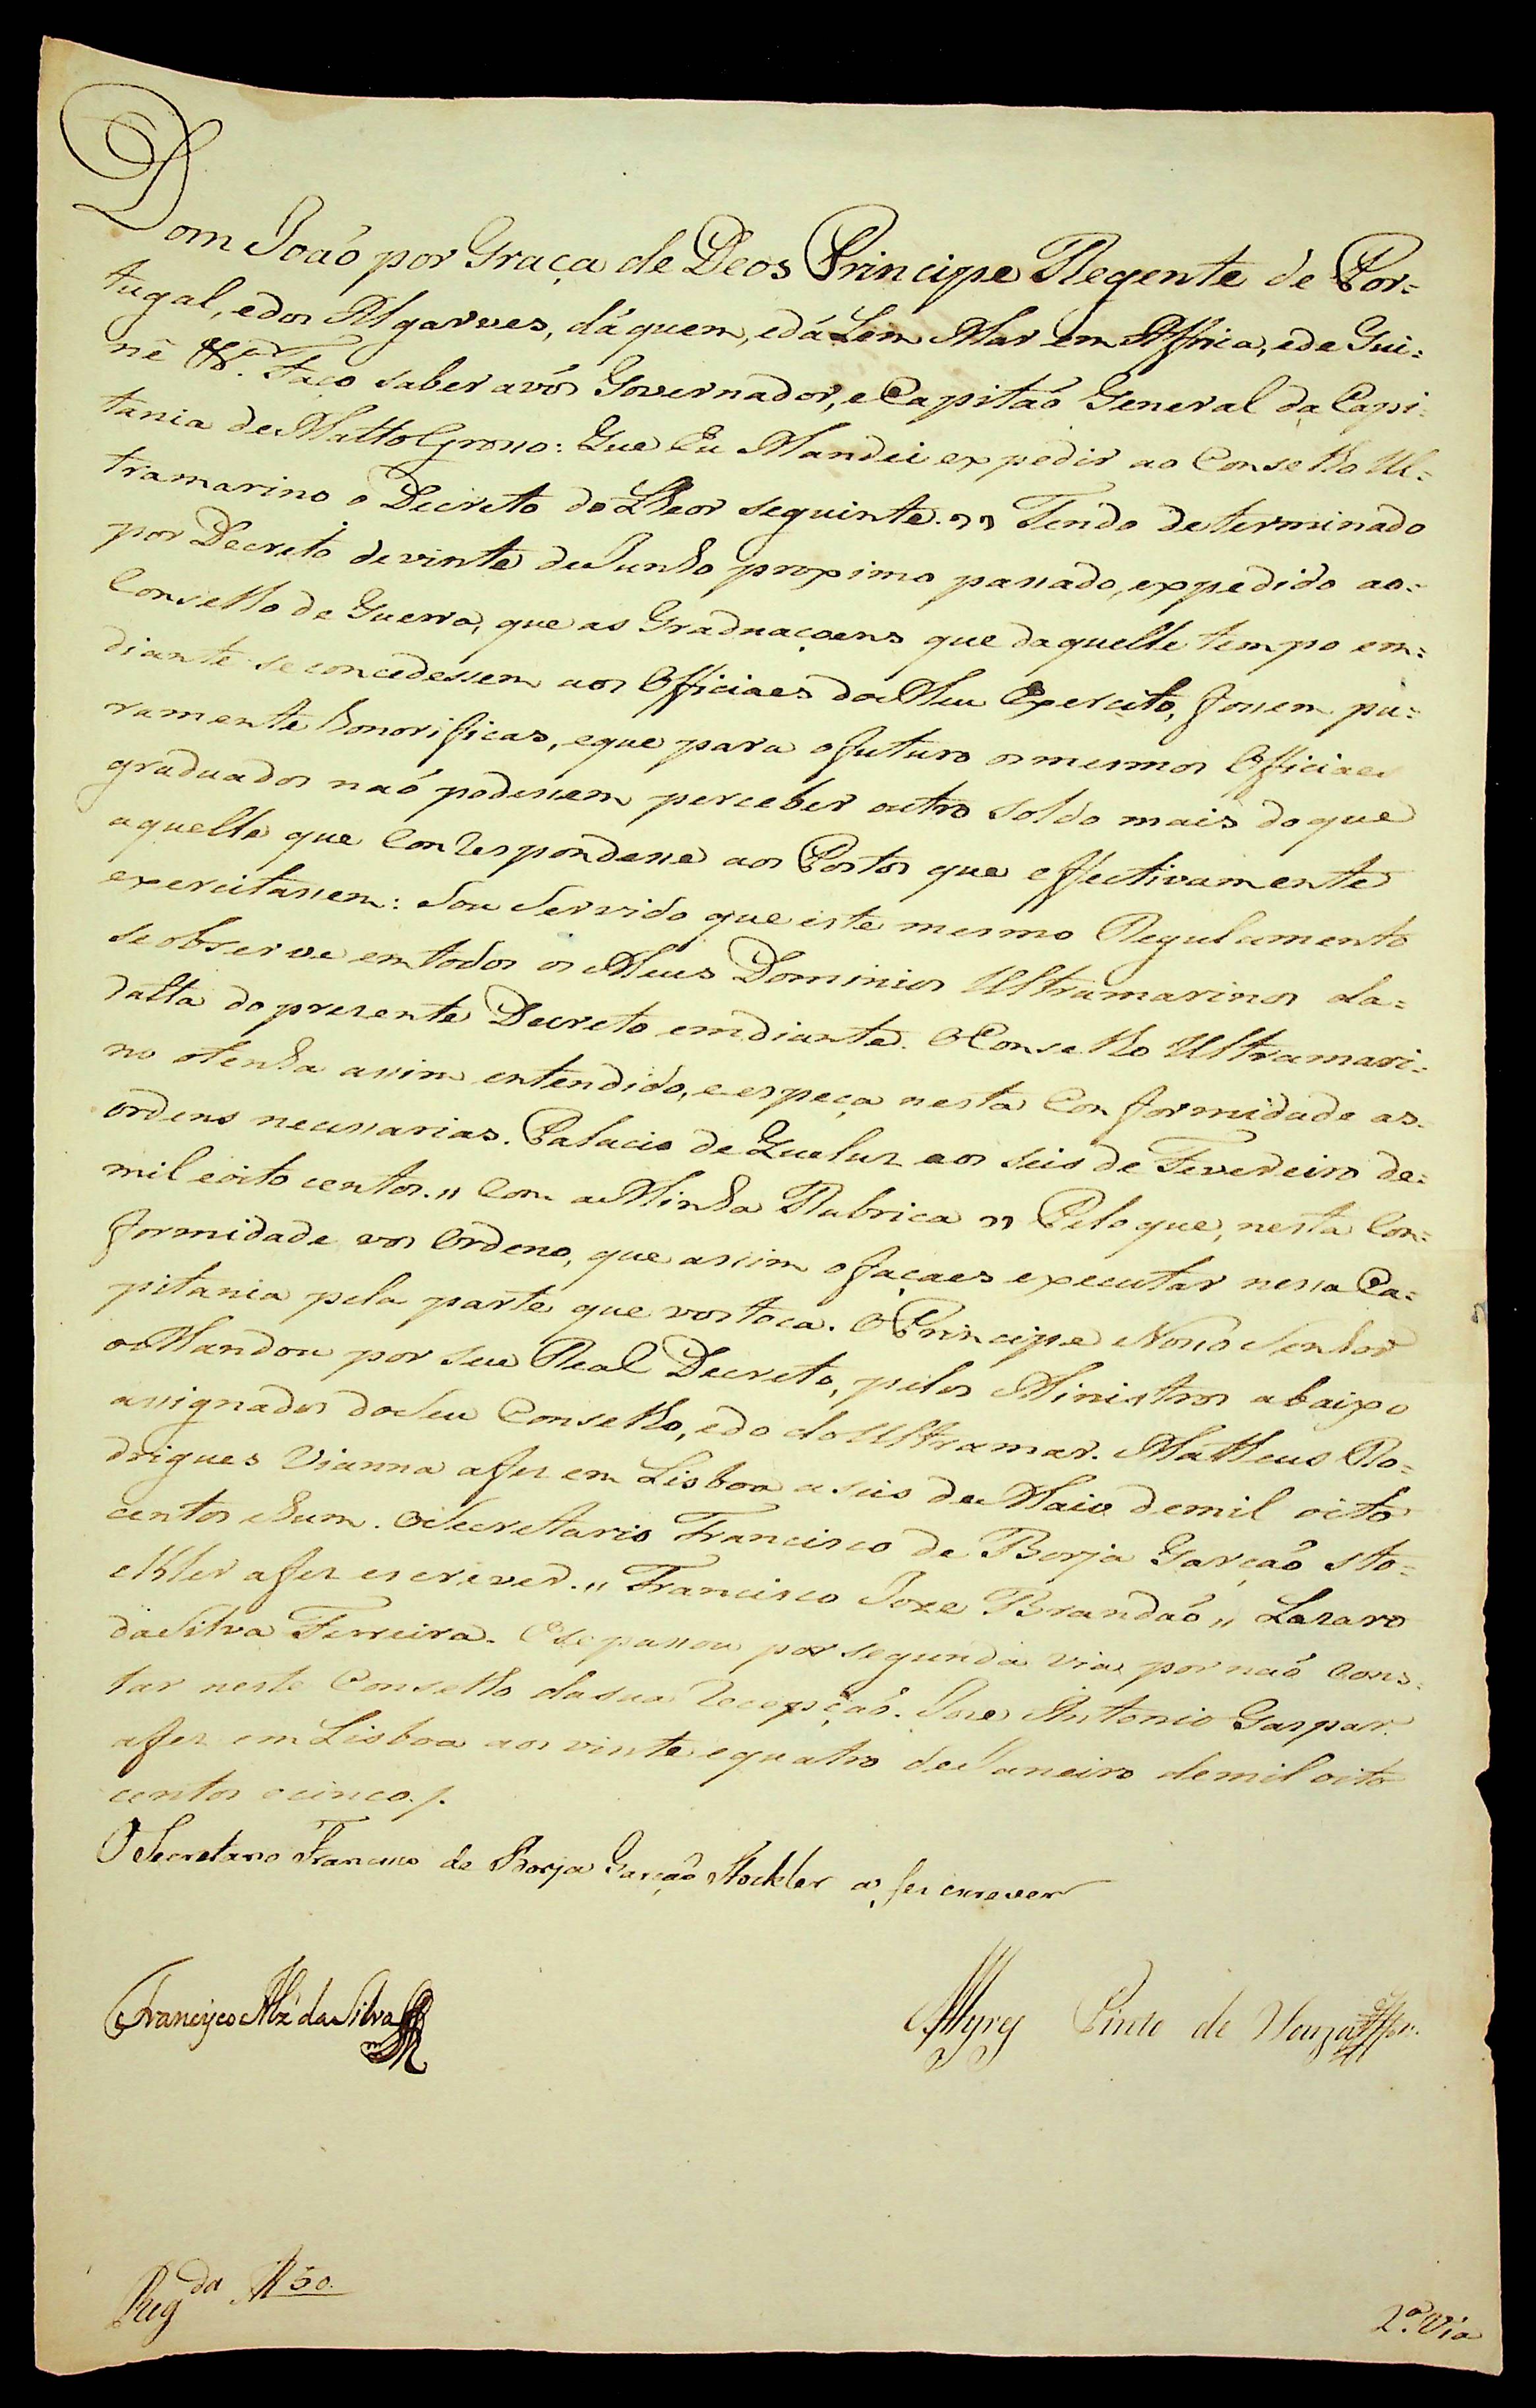 Dom Joaõ por Graça de Deos Principe Regente de Por=
tugal, edos Algarves, dáquem, edáLem Mar em Affrica, ede Gui=
nê &cª. Faço saber avós Governador, e Capitaõ General da Capi=
tania de Matto Grosso: Que Eu Mandei expedir ao Conselho Ul=
tramarino o Decreto do Theor seguinte. ,, Tendo determinado
por Decreto de vinte de Junho proximo passado, expedido ao=
Conselho de Guerra, que as Graduaçoens que daquelle tempo em=
diante se concedessem aos Officiaes do Meu Exercito, fossem pu=
ramente honorificas, eque para o futuro os mesmos Officiaes
graduados naõ podessem perceber outro soldo mais do que
aquelle que Correspondesse aos Postos que effectivamente
exercitassem: Sou Servido que este mesmo Regulamento
se observe em todos os Meus Dominios Ultramarinos da=
datta do prezente Decreto emdiante. O Conselho Ultramari=
no o tenha assim entendido, e espeça nesta Conformidade as
ordens necessarias. Palacio de Queluz aos seis de Fevereiro de=
mil eoito centos. ,, Com a Minha Rubrica ,, Pelo que, nesta Con=
formidade vos Ordeno, que assim o façaes executar nessa Ca=
pitania pela parte que vos toca. O Principe Nosso Senhor
o Mandou por seu Real Decreto, pelos Ministros abaixo
assignados do Seu Conselho, edo do Ultramar. Matheus Ro=
drigues Vianna a fez em Lisboa a seis de Maio demil oito
centos e hum. O Secretario Francisco de Borja Garçaõ Sto=
ckler a fez escrever. ,, Francisco Joze Brandaõ ,, Lazaro
da Silva Ferreira. E se passou por segunda via por naõ Cons=
tar neste Conselho da sua recepçaõ. Joze Antonio Gaspar
a fez em Lisboa aos vinte equatro de Janeiro demil oito
centos e cinco./.
O Secretario Francisco de Borja Garçaõ Stockler a fez escrever
Francisco Alz da Silva
Ayres Pinto de Souza
Regda
2ª. Via